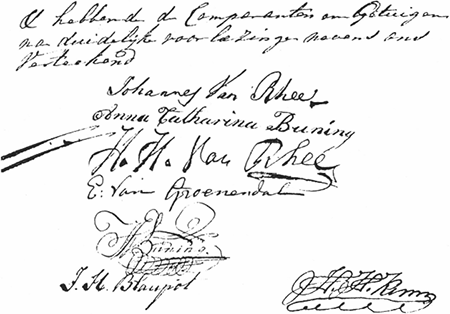 hebbende de Comparanten en Getuigen
na duidelijke voorlezinge nevens ons
Verteekend
Johannes Van Rhee
Anna Catharina Buning
H. H. Van Rhee
E. Van Groenendal
Buning
J. H. Blaupot